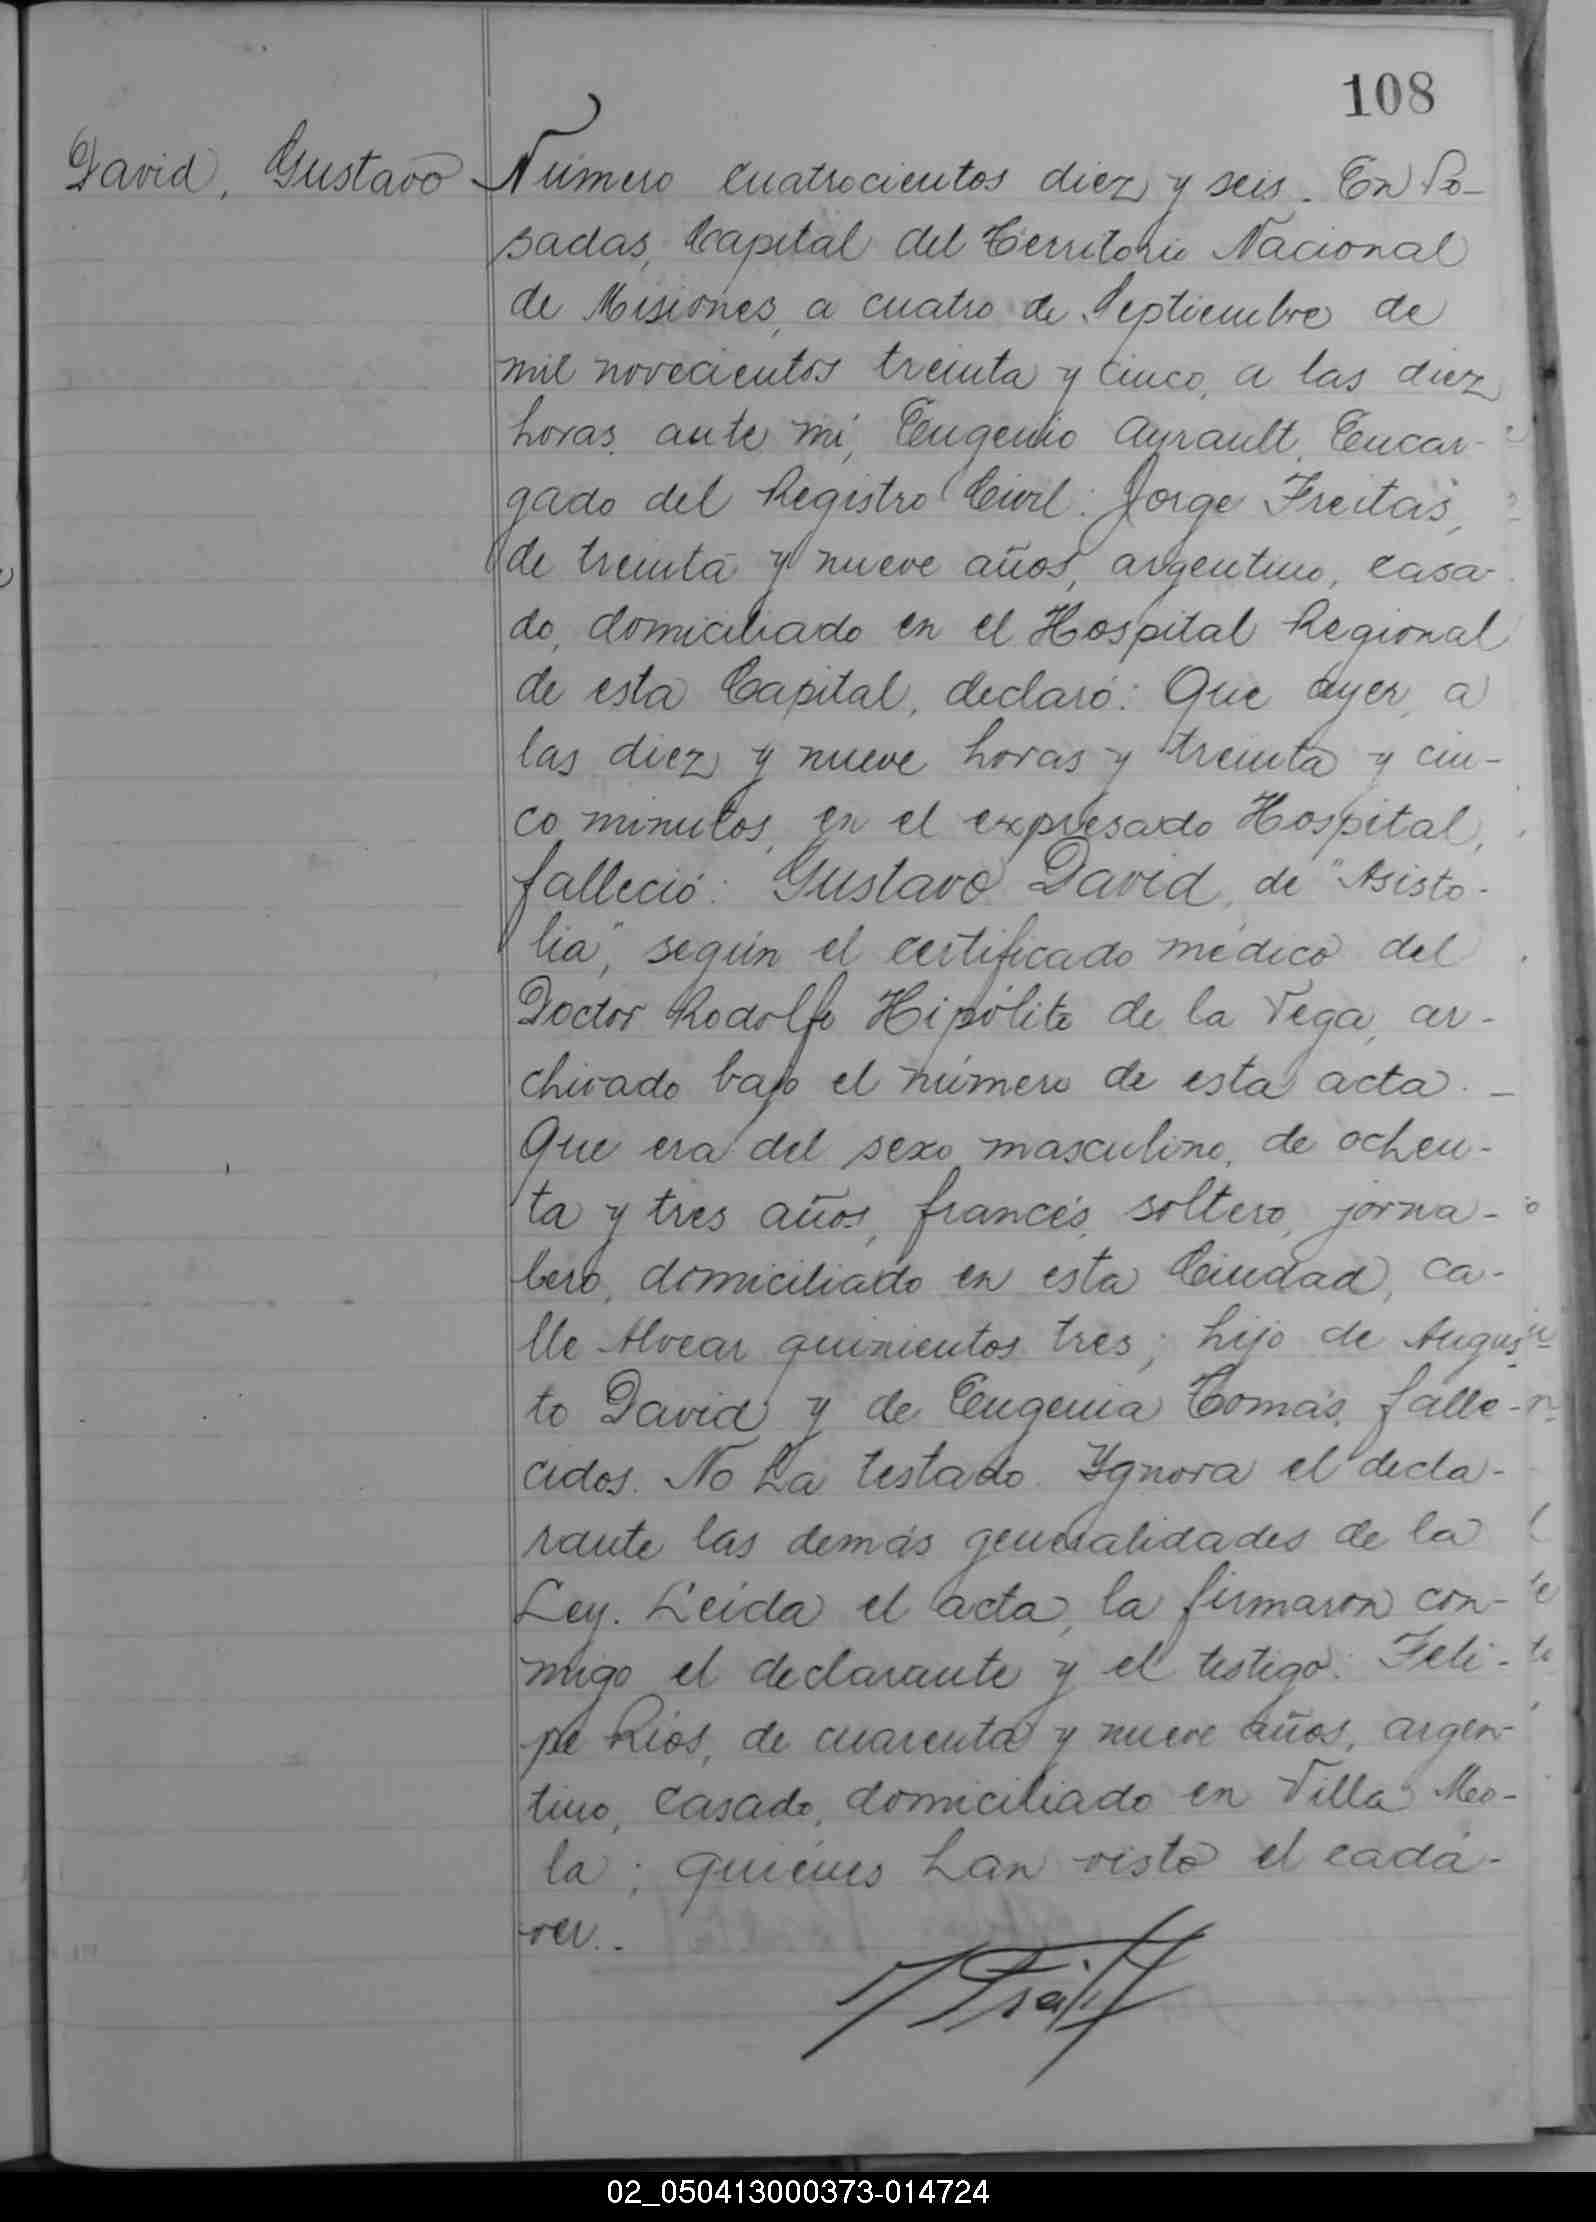 108
David, Gustavo
Número cuatrocientos diez y seis. En Po-
sadas, Capital del Territorio Nacional
de Misiones, a cuatro de Septiembre de
mil novecientos treinta y cinco, a las diez
horas, ante mí, Eugenio Ayrault, Encar-
gado del Registro Civil: Jorge Freitas,
de treinta y nueve años, argentino, casa-
do, domiciliado en el Hospital Regional
de esta Capital, declaró: Que ayer, a
las diez y nueve horas y treinta y cin-
co minutos, en el expresado Hospital,
falleció: Gustavo David, de "Asisto-
lia", según el certificado médico del
Doctor Rodolfo Hipólito de la Vega, ar-
chivado bajo el número de esta acta. _
Que era del sexo masculino, de ochen-
ta y tres años, francés, soltero, jorna-
lero, domiciliado en esta Ciudad, ca-
lle Alvear quinientos tres; hijo de Augus-
to David y de Eugenia Tomás, falle-
cidos. No ha testado. Ygnora el decla-
rante las demás generalidades de la
Ley. Leida el acta, la firmaron con-
migo el declarante y el testigo: Feli-
pe Ríos, de cuarenta y nueve años, argen-
tino, casado, domiciliado en Villa Meo-
la; quiénes han visto el cadá-
ver..
02_050413000373-014724